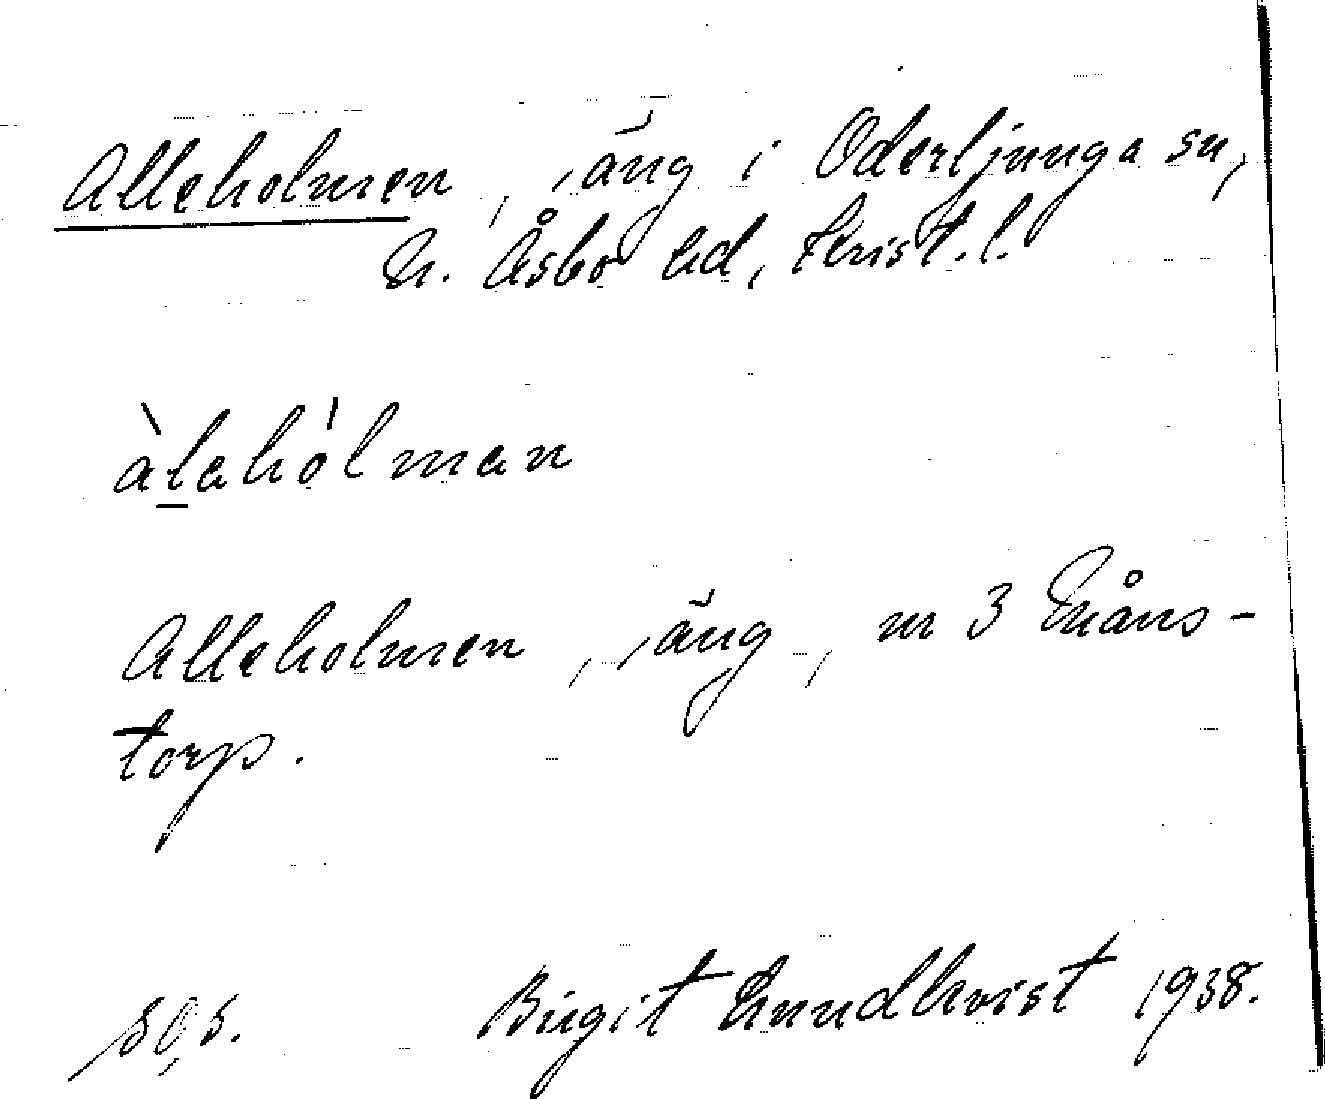 Alleholmen, äng i Oderljunga sn,
N. Åsbo hd, Krist. l.
àlahólman
Alleholmen, äng, nr 3 Måns-
torp.
Birgit Lundkvist 1938.